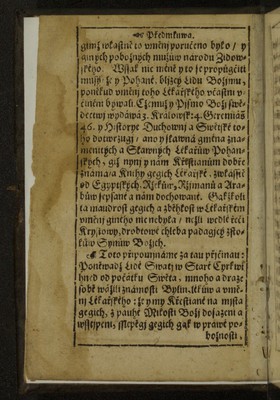 Předmluwa.
gimž wlastně to vměnj poručeno bylo / y
gyných pobožných mužůw národu Židow-
ského. Wssak nic méně y to se propůgčiti
musý / že y Pohané, bližcý Lidu Božjmu,
poněkud vměnj toho Lékařského včastni v-
činěni bywali. Cžemuž y Pjsmo Božj swě-
dectwj wydáwá 3. Kralowsk: 4. Geremiáš
46. y Hystorye Duchownj a Swětské to-
ho dotwrzugj: ano y sławná gména zna-
menitých a Sławných Lékařůw Pohan-
ských, giž nynj y nám Křesťianům dobře
známá a Knihy gegich Lékařské, zwlásstě
od Egyptských, Ržekůw, Ržjmanů a Ara-
bůw sepsané a nám dochowané. Gakžkoli
ta maudrost gegich a zběhlost w Lékařském
vměnj giného nic nebyla / nežli wedlé řeči
Krystowy, drobtowé chleba padagjcý s sto-
lůw Synůw Božjch.
Toto připomjnáme za tau přjčinau:
Poněwadž Lidé Swatj w Staré Cyrkwi
hned od počátku Swěta, mnoho a draze
sobě wážili známosti Bylin, lékůw a vmě-
nj Lékařského: že y my Křestiané na mjsta
gegich, z pauhé Milosti Božj dosazeni a
wsstjpeni, sslepěgj gegich gak w prawé po-
božnosti,